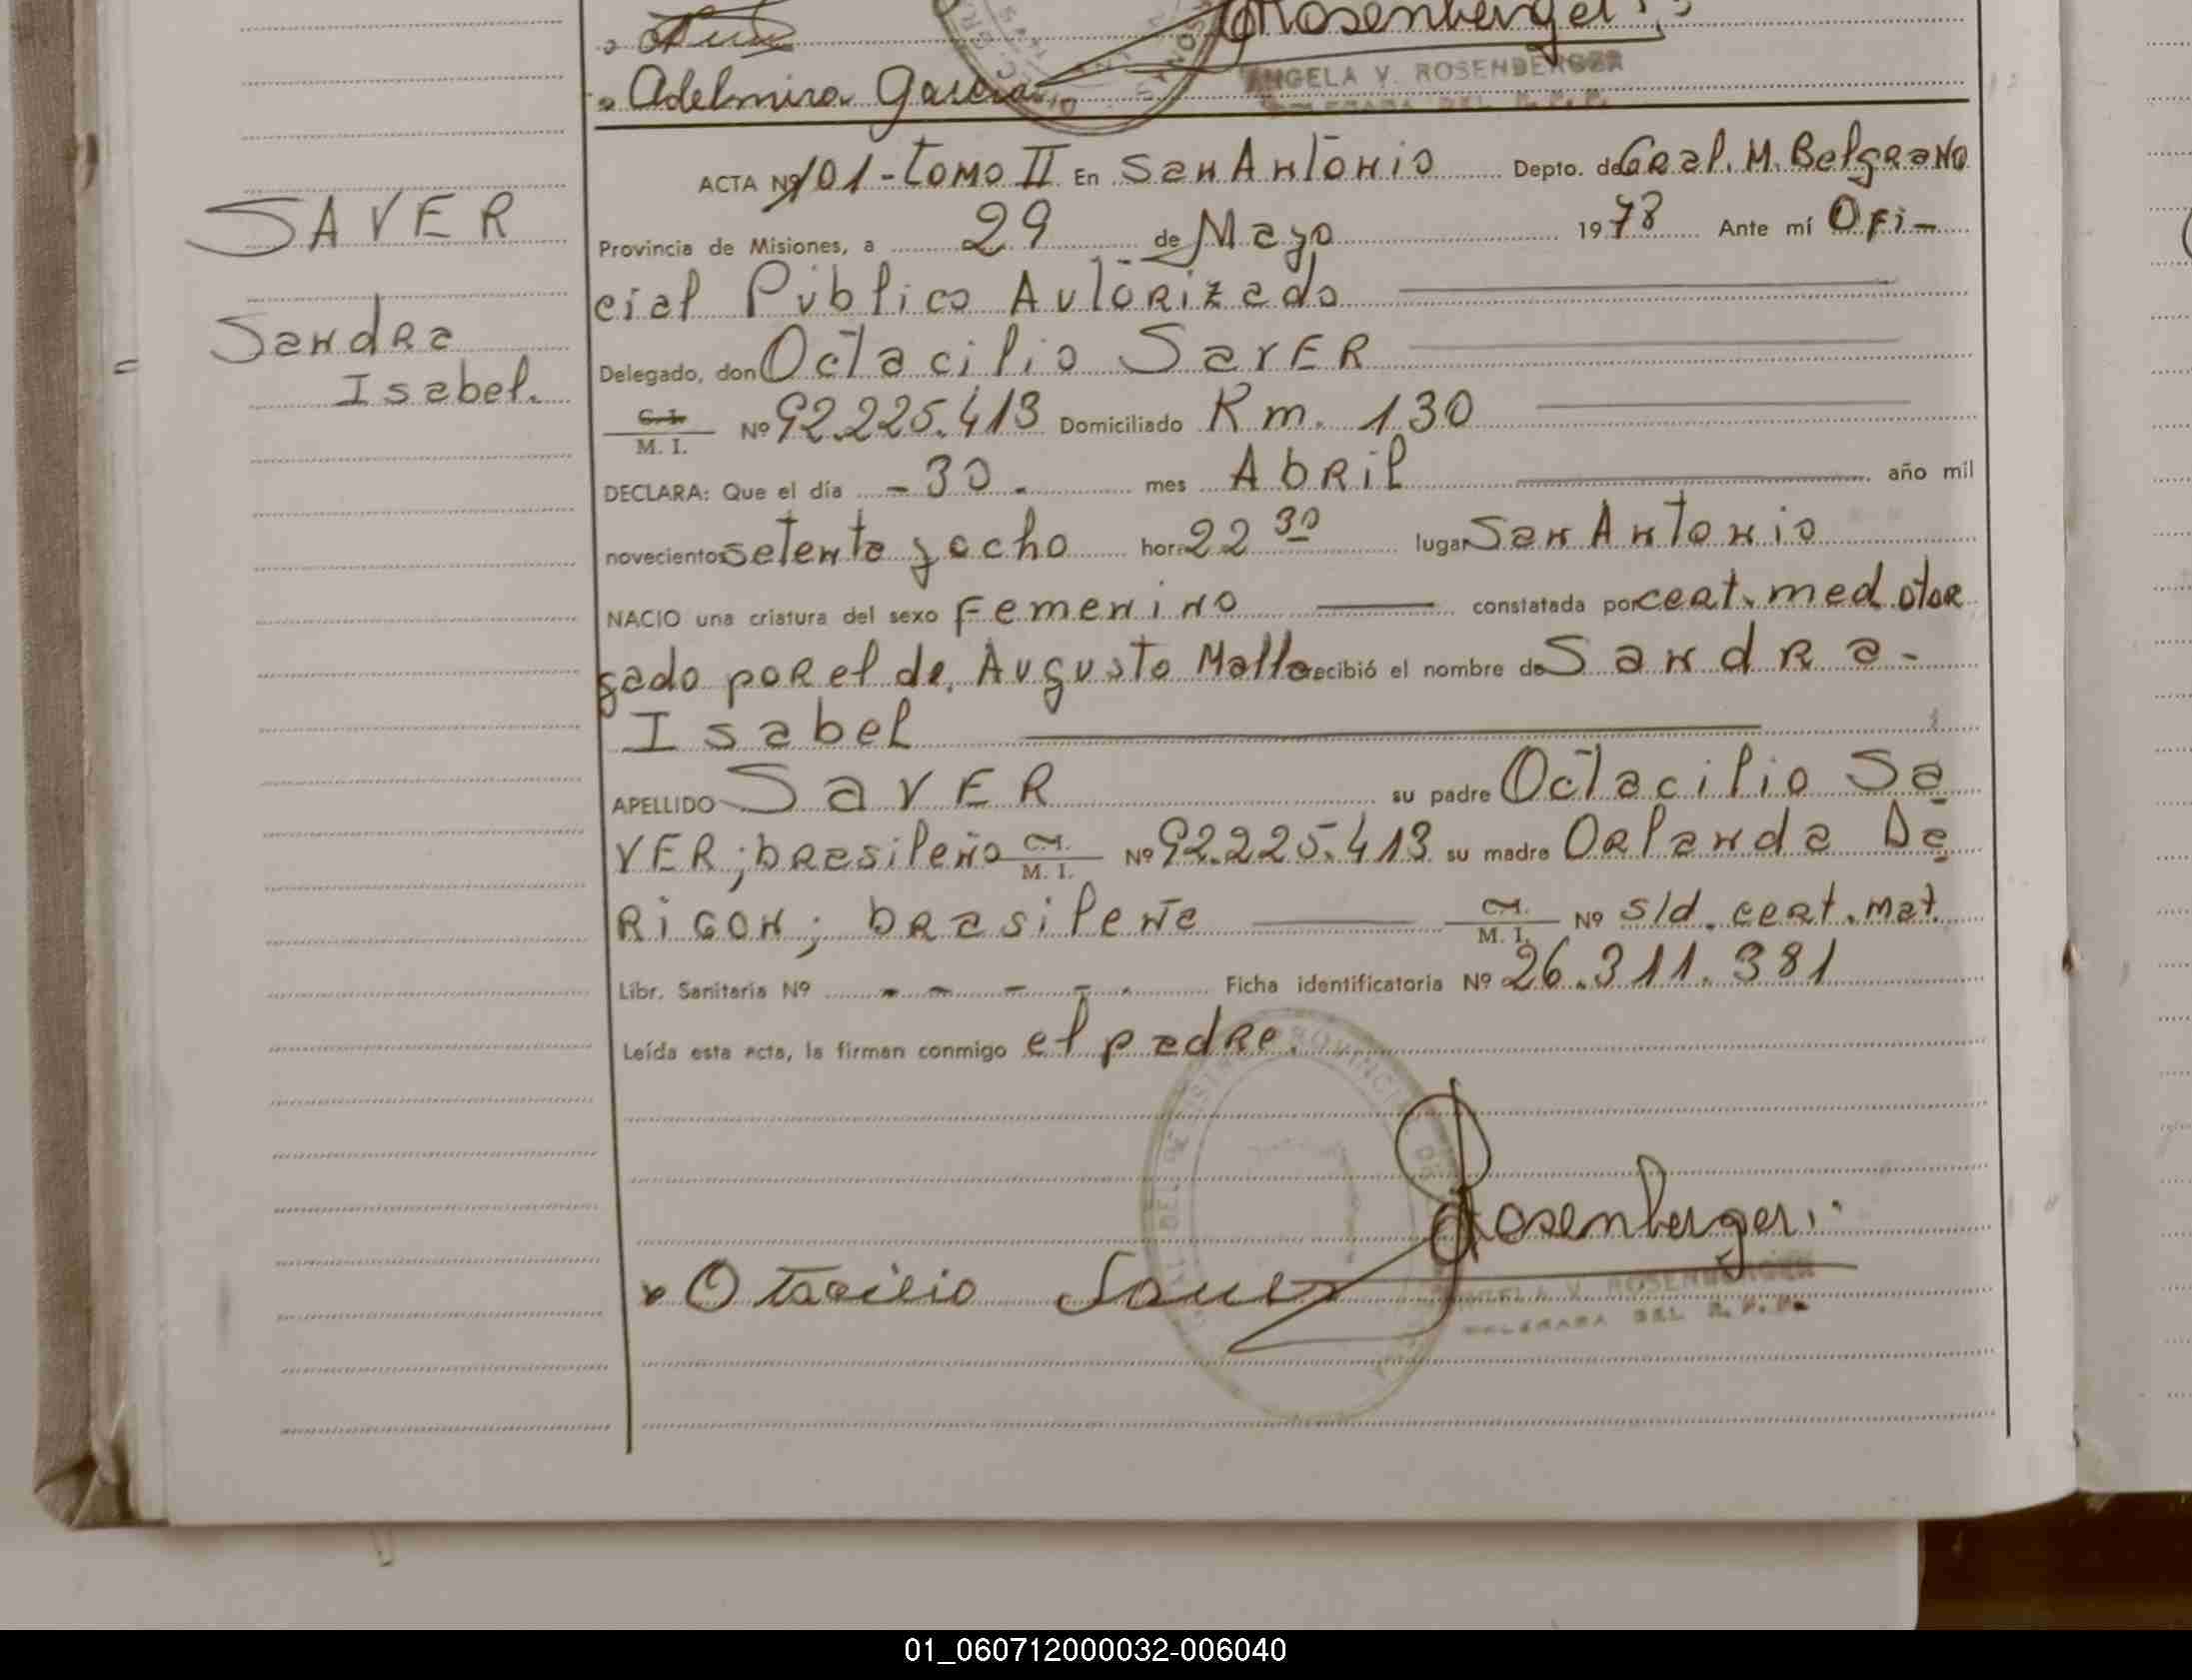 Rosenberger
ANGELA V. ROSENBERGER
Adelmira Garcia
DELEGADA DEL R. P. P.
ACTA Nº 101 - Tomo II En San Antonio Depto. de Gral. M. Belgrano
SAVER
Provincia de Misiones, a 29 de Mayo 1978 Ante mí Ofi-
cial Público Autorizado
Sandra
Delegado, don Octacilio Saver
Isabel.
C. I. M. I. Nº 92.225.413 Domiciliado Km. 130
DECLARA: Que el día - 30 - mes Abril año mil
novecientos setenta y ocho hora 22 30 lugar San Antonio
NACIO una criatura del sexo Femenino constatada por cert. med otor
gado por el dr. Augusto Mallo recibió el nombre de Sandra -
Isabel
APELLIDO SAVER su padre Octacilio Sa
VER; brasileño C.I. M. I. Nº 92.225.413 su madre Orlanda De
Rigon; brasileña C.I. M. I. Nº s/d. cert. mat.
Libr. Sanitaria Nº - - - - - Ficha identificatoria Nº 26.311.381
Leída esta acta, la firman conmigo el padre.
Rosenberger
Otacilio Saver
ANGELA V. ROSENBERGER
DELEGADA DEL R. P. P.
01_060712000032-006040